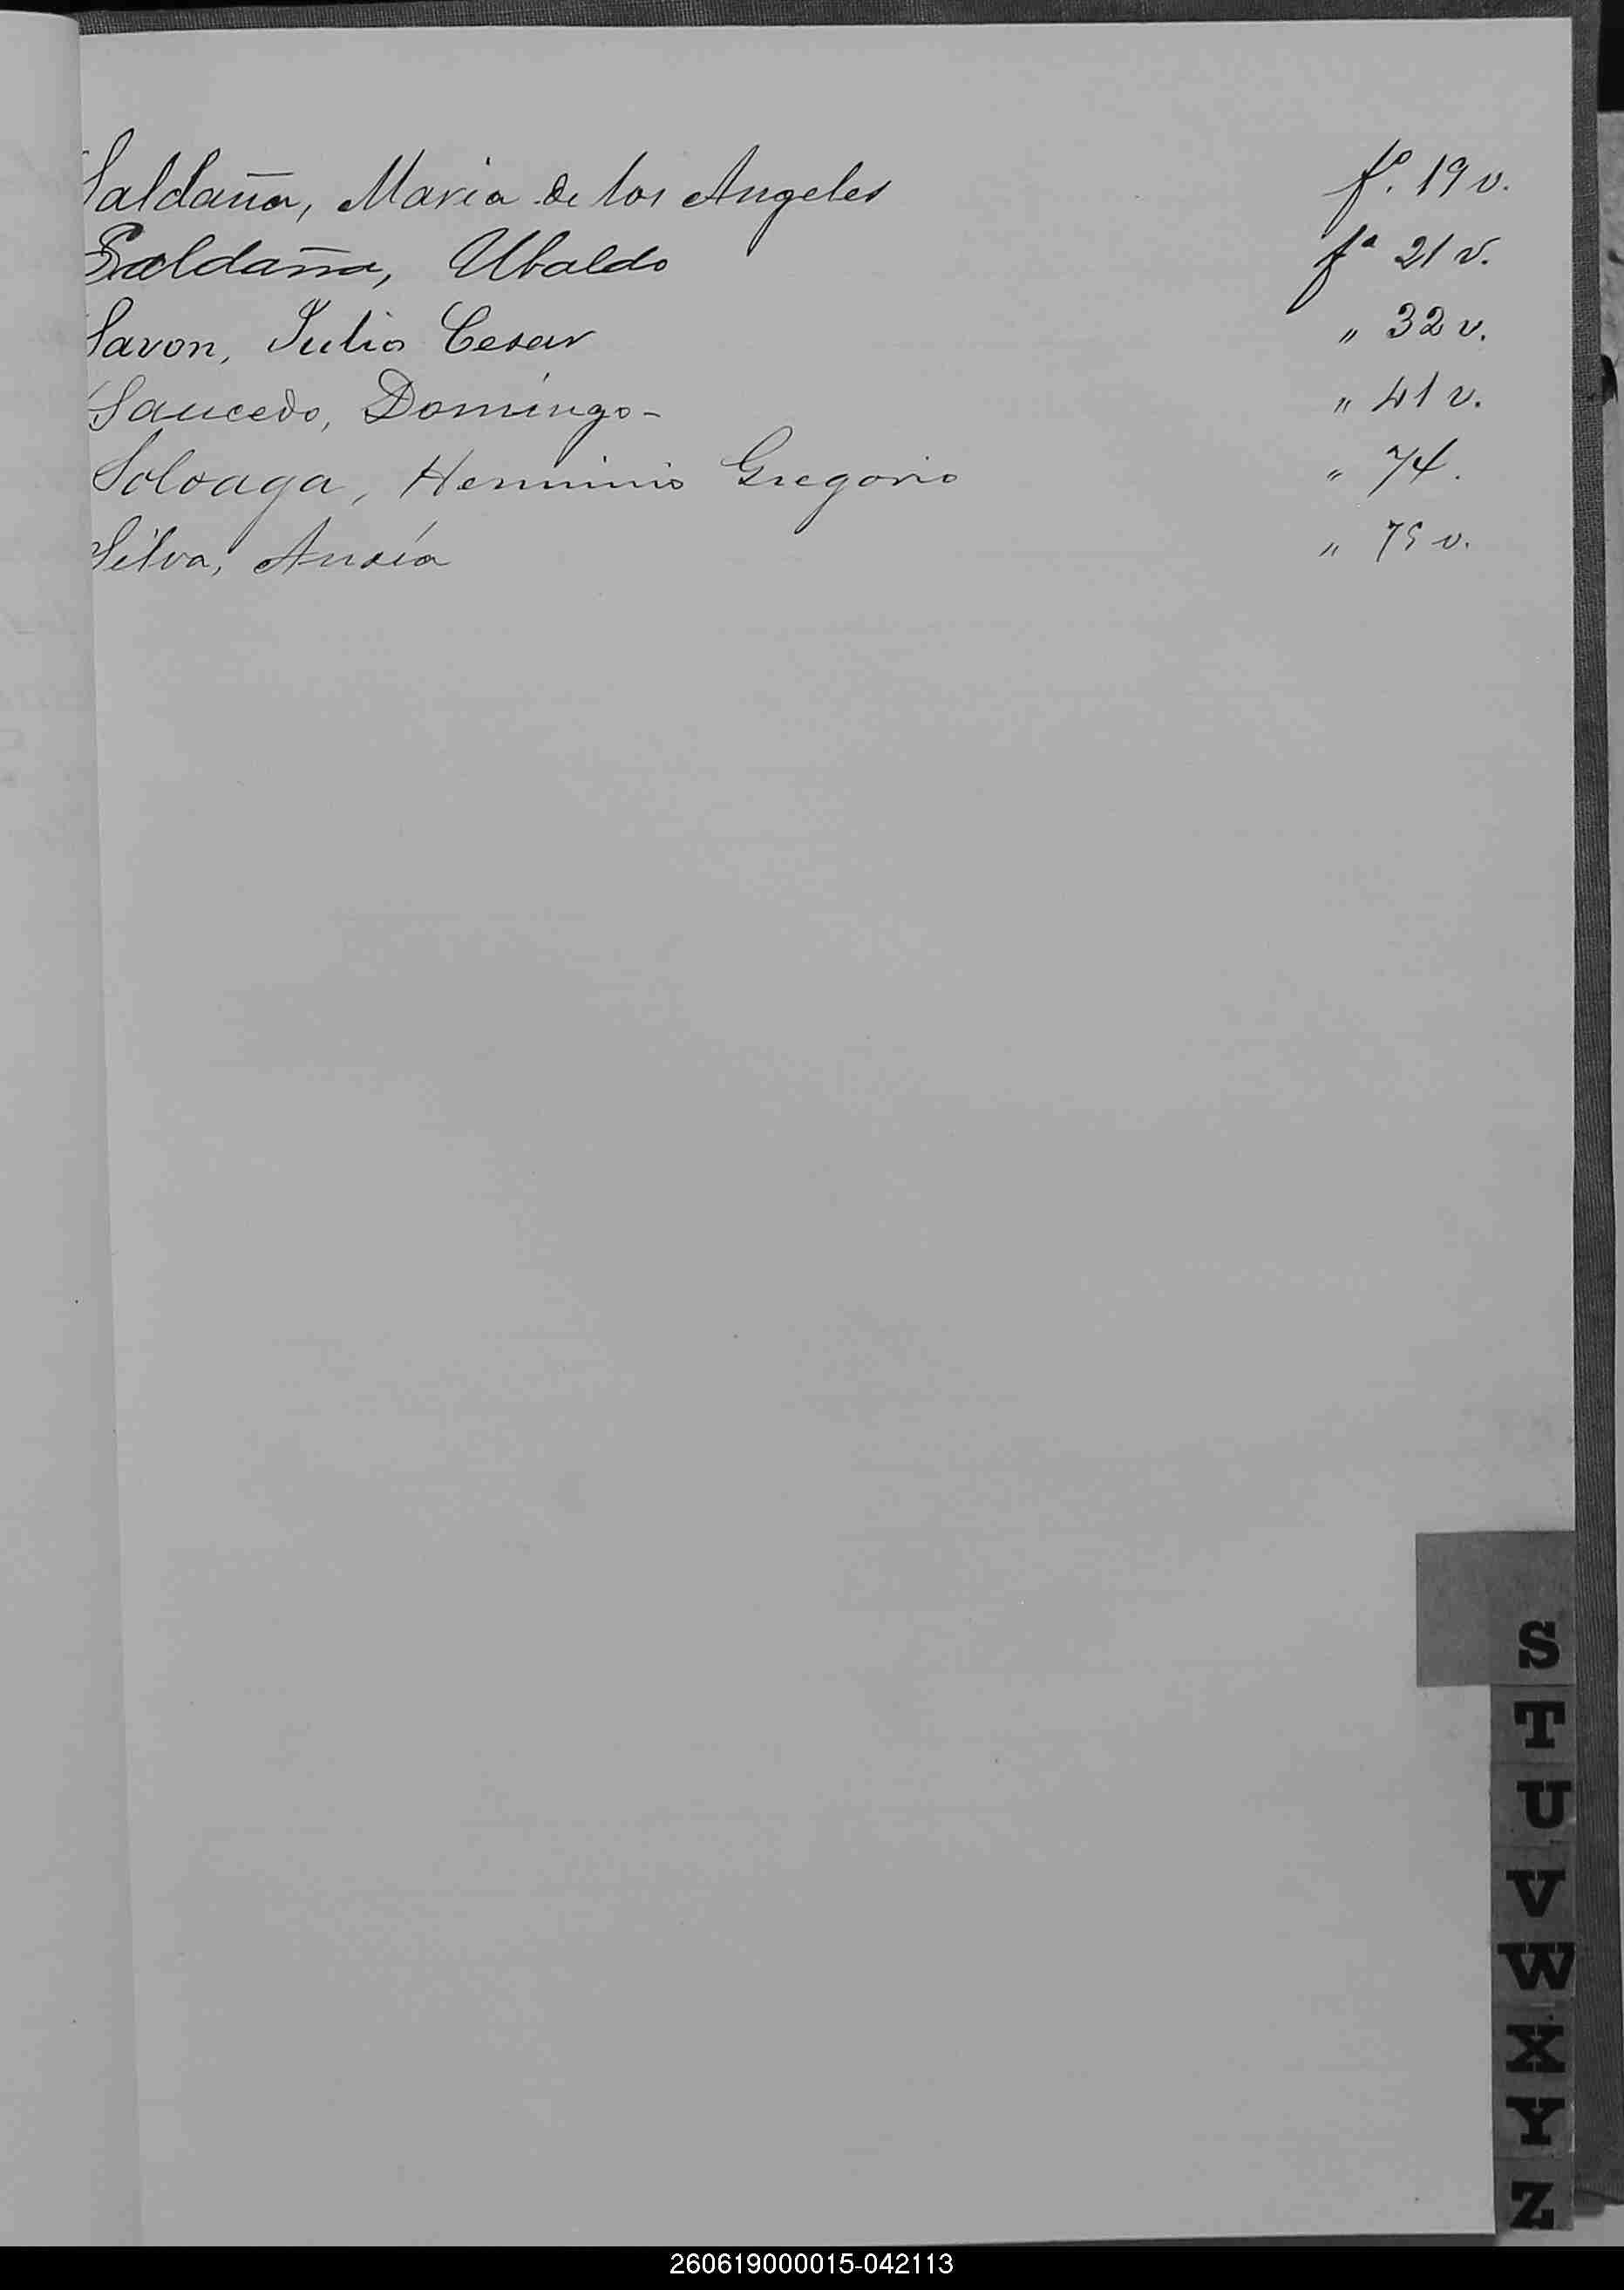 Saldaña, Maria de los Angeles fº. 19 v.
Saldaña, Ubaldo fº 21 v.
Savon, Julio Cesar " 32 v.
Saucedo, Domingo - " 41 v.
Soloaga, Herminio Gregorio " 74.
Silva, " 75 v.
S
T
U
V
W
X
Y
Z
260619000015-042113